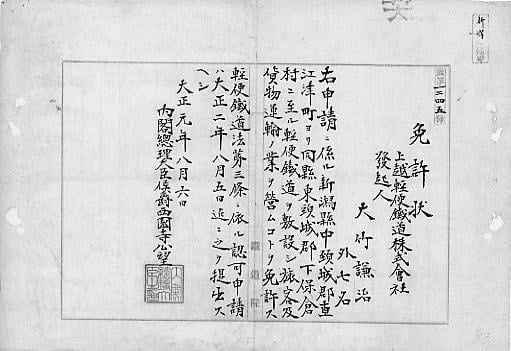 監第一二四五號
免許狀
上越輕便鐵道株式會社
發起人
大竹謙治
外七名
右申請ニ係ル新潟縣中頚城郡直
江津町ヨリ同縣東頚城郡下保倉
村ニ至ル輕便鐵道ヲ敷設シ旅客及
貨物運輸ノ業ヲ營ムコトヲ免許ス
輕便鐵道法第三條ニ依ル認可申請
ハ大正二年八月五日迄ニ之ヲ提出ス
ヘシ
大正元年八月六日
內閣總理大臣侯爵西園寺公望
鐵道院